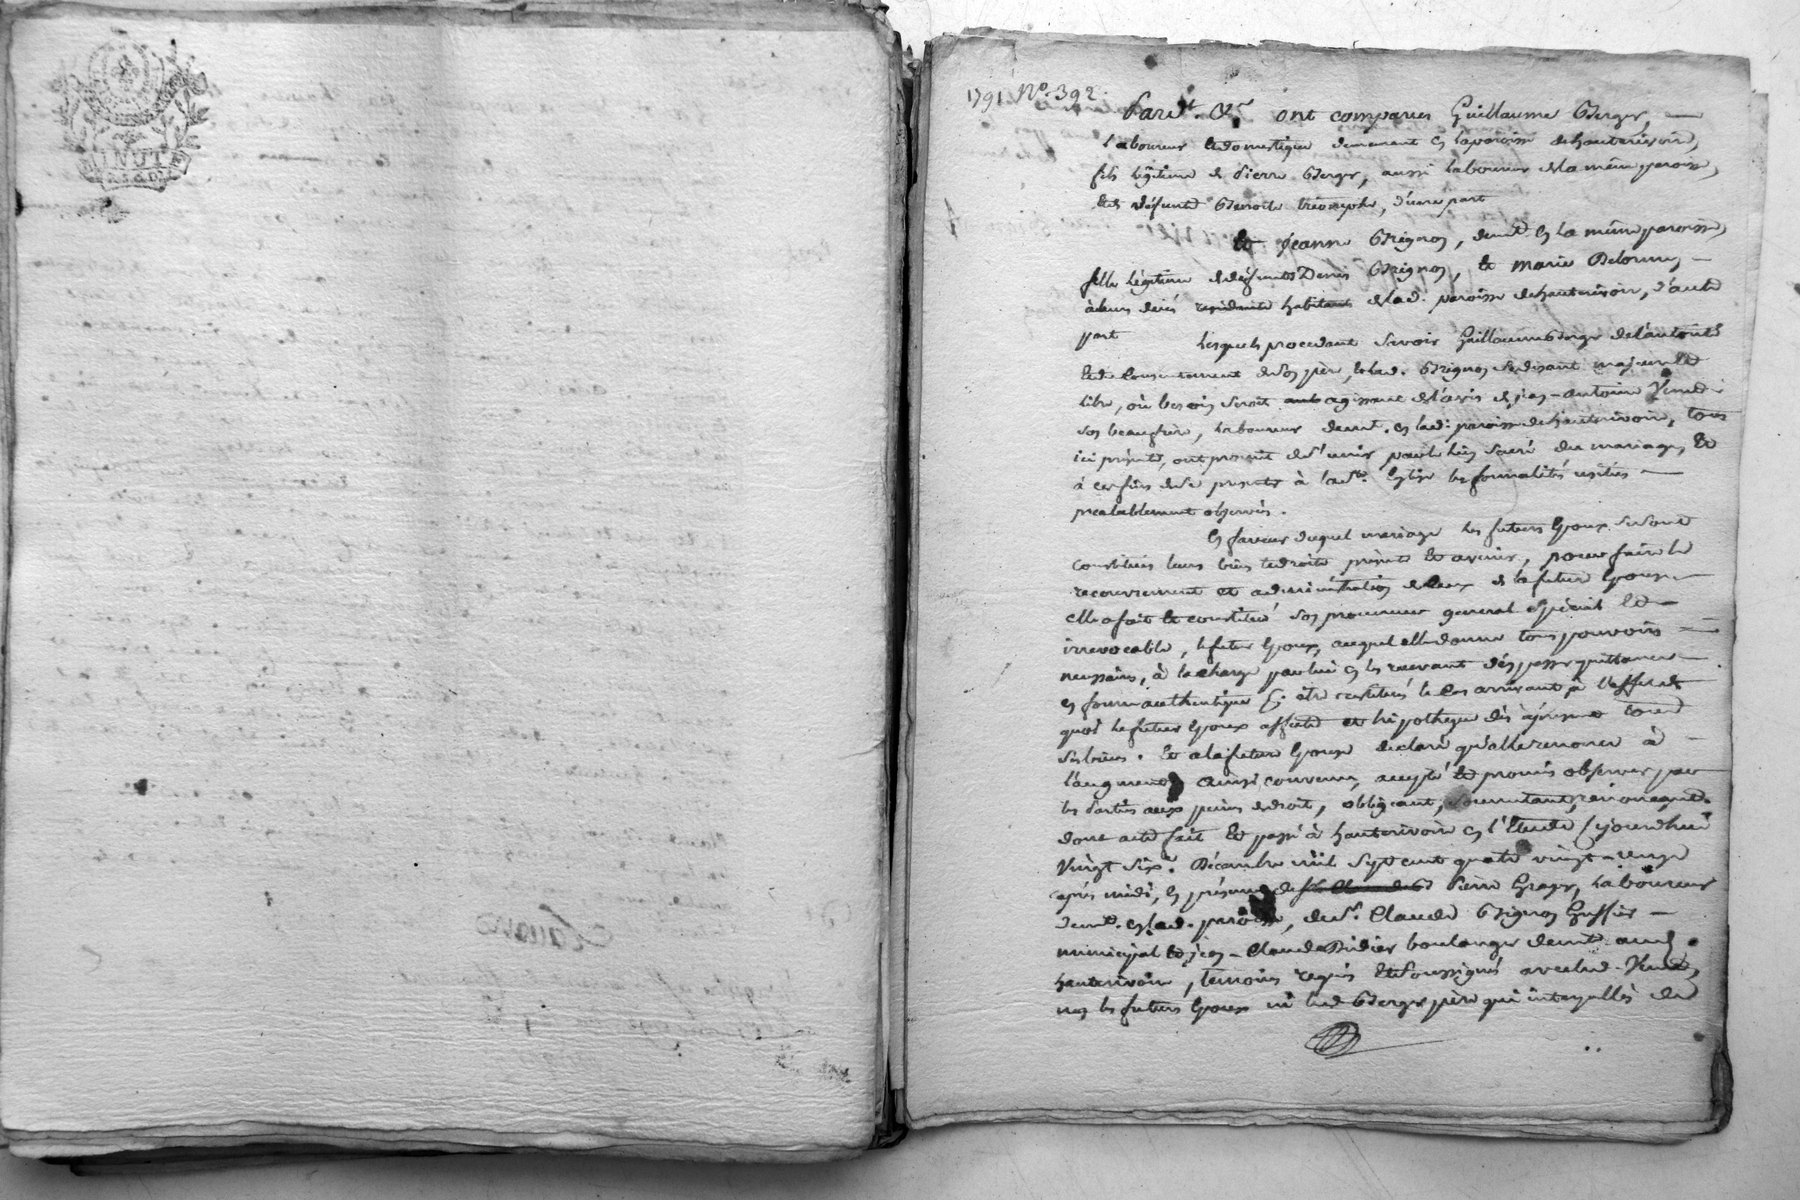 MINUTE
1791 N° 392.
Pard.t &.r ont comparus Guillaume Berger,
laboureur et domestique demeurant en la paroisse de hauterivoire,
fils légitime de Pierre Berger, aussi laboureur de la même paroisse,
et de défunte Benoite, d'une part
Et Jeanne Brignon, demt en la même paroisse,
fille légitime de défunts Denis Brignon, et Marie Delorme,
à leurs décés habitans de lad. paroisse de hauterivoire, d'autre
part lesquels procedant savoir Guillaume Berger de l'autorité
et du consentement de son père, et lad. Brignon se disant majeure et
libre, où besoin seroit agissant de l'avis de jean-antoine
son beaufrère, laboureur demt. en lad. paroisse de hauterivoire, tous
ici présents, ont promis de s'unir par le lien sacré du mariage, et
à ces fins de se presenter à la Ste. Eglise les formalités usitées
préalablement observées.
En faveur duquel mariage les futurs Epoux se sont
constitués leurs biens et droits présents et avenir, pour faire le
recouvrement et administration de ceux de la future Epouse
elle a fait et constitué son procureur general spécial et
irrevocable, le futur Epoux, auquel elle donne tous pouvoirs
necessaires, à la charge par lui en les recevant d'en passer quittances
en forme authentique p. être restitués le cas arrivant à l'effet de
quoi le futur Epoux affecte et hipotheque dès àprésent tous
ses biens. Et a la future Epouse declaré qu'elle renonce à
l'augment ainsi convenu, accepté et promis observer par
les parties aux peines de droit, obligeant, soumettant, renonçant.
dont acte fait et passé à hauterivoire en l'Etude cejourdhui
vingt six. Décembre mil sept cent quatre vingt-onze
après midi, en présence de Pierre laboureur
demt. en lad. paroisse, du Sr. Claude Brignon Greffier
municipal et jean-Claude Didier boulanger demt aud.
hauterivoire, temoins requis et soussignés avec led.
non les futurs Epoux ni led Berger père qui interpellés de